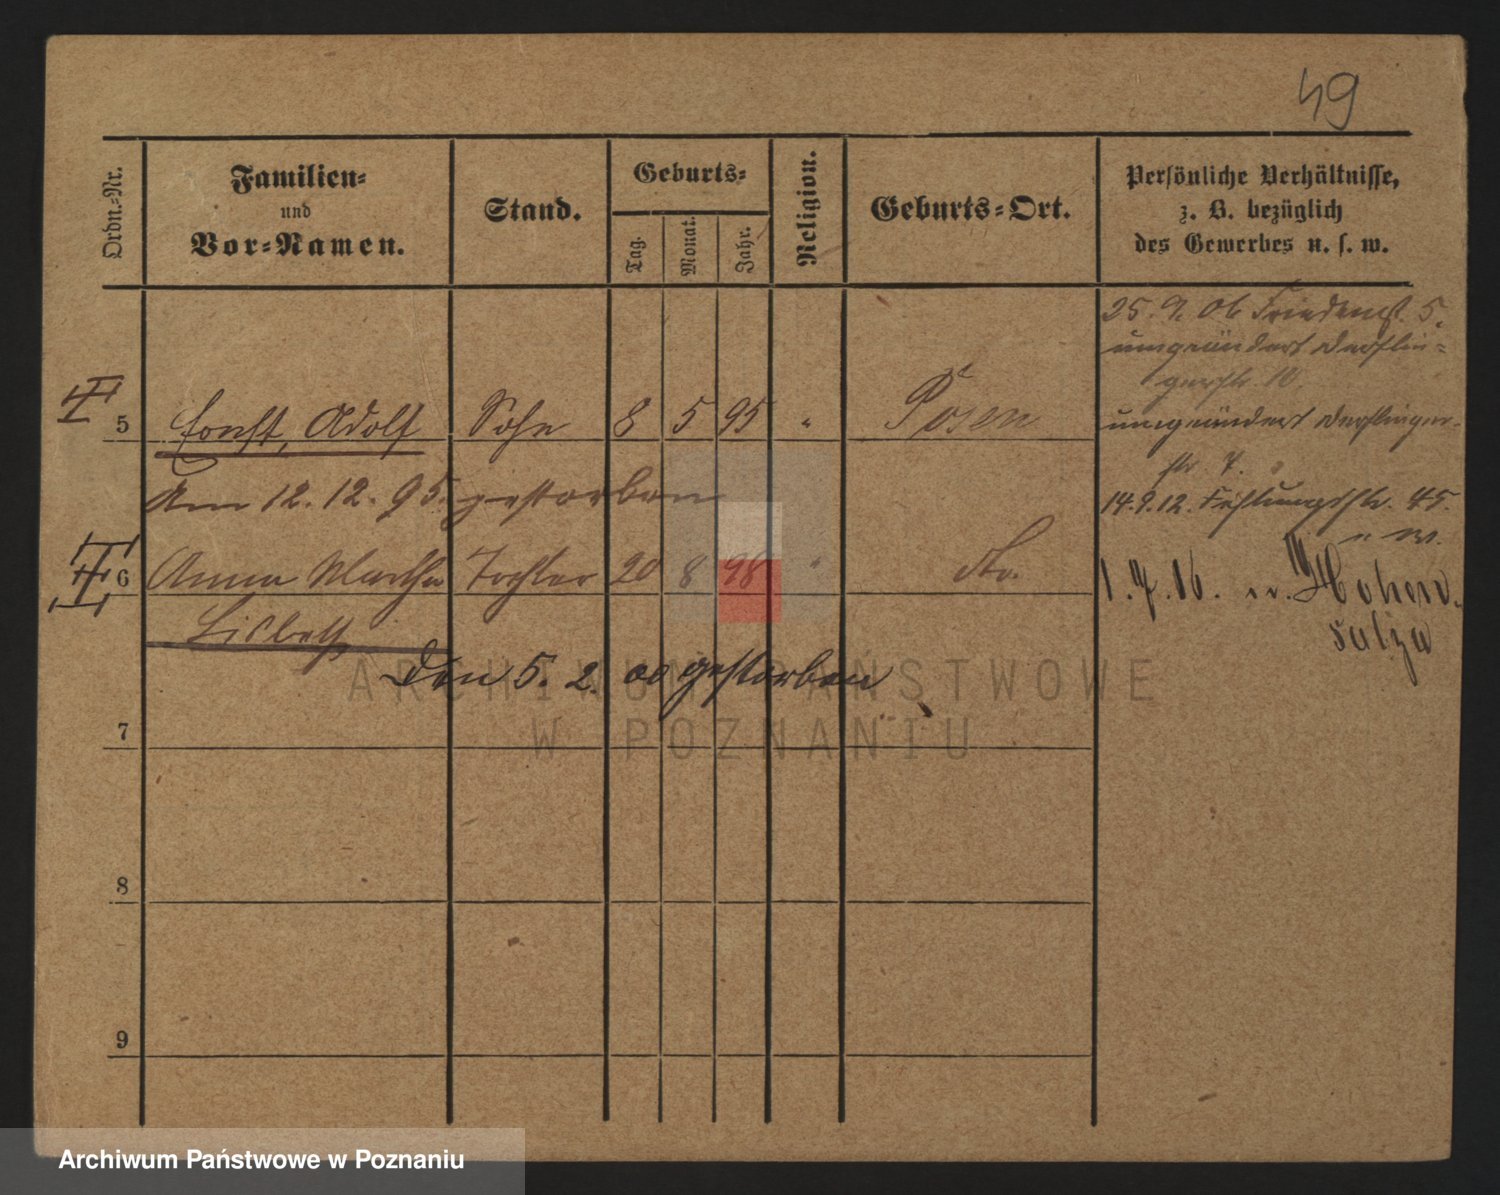 49
Ordn.-Nr.
Familien-
und
Vor-Namen.
Stand.
Geburts-
Tag.
Monat.
Jahr.
Religion.
Geburts-Ort.
Persönliche Verhältnisse,
z. B. bezüglich
des Gewerbes u. s. w.
25. 9. 06 Friedenst. 5.
umgeändert Derflin-
gerstr. 10.
5 Ernst, Adolf Sohn 8 5 95 " Posen
umgeändert Derflinger-
str. 7.
Am 12. 12. 95 gestorben
14. 9. 12. Festungsstr. 45.
6 Anna Martha Tochter 20 8 98 " do.
1. 7. 16. n. Hohen-
Lisbeth
salza
den 5. 2. 00 gestorben
7
8
9
ARCHIWUM PAŃSTWOWE
W POZNANIU
Archiwum Państwowe w Poznaniu